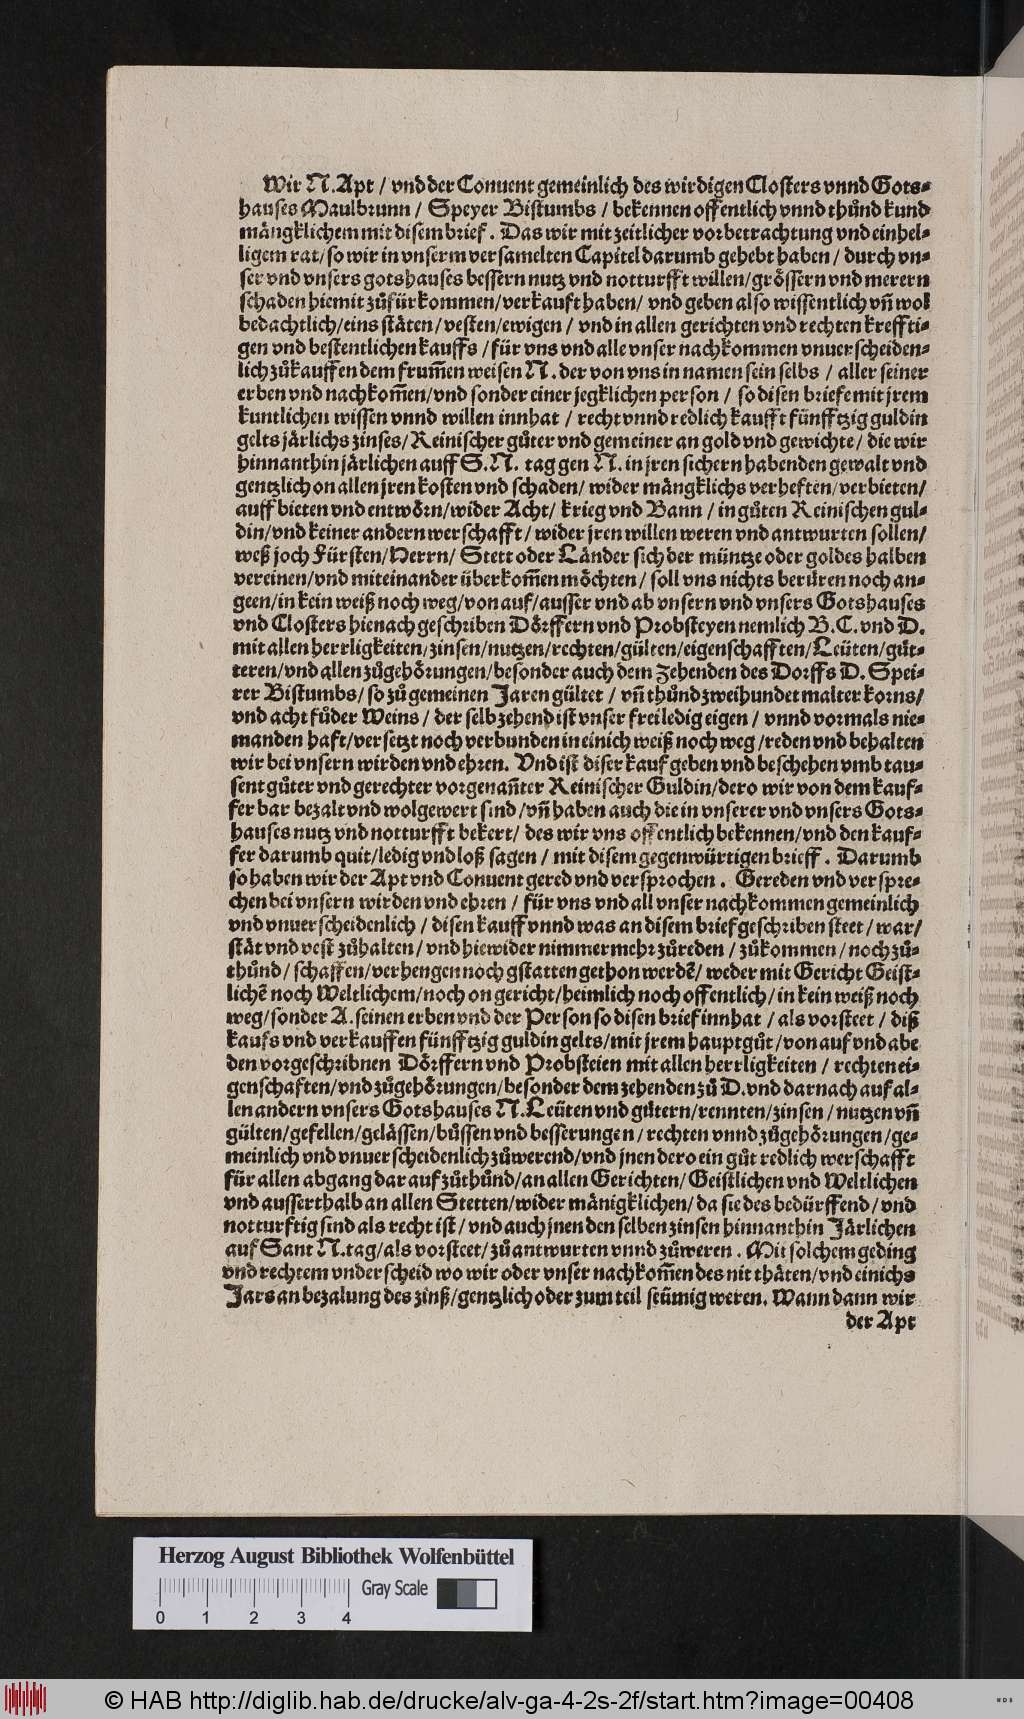 Wir N. Apt / vnd der Conuent gemeinlich des wirdigen Closters vnnd Gots⸗
hauses Maulbrunn / Speyer Bistumbs / bekennen offentlich vnnd thůnd kund
mängklichem mit disem brief. Das wir mit zeitlicher vorbetrachtung vnd einhel⸗
ligem rat / so wir in vnserm versamelten Capitel darumb gehebt haben / durch vn⸗
ser vnd vnsers gotshauses bessern nutz vnd notturfft willen / grössern vnd merern
schaden hiemit zůfürkommen / verkaufft haben / vnd geben also wissentlich vñ wol
bedachtlich / eins stäten / vesten / ewigen / vnd in allen gerichten vnd rechten kreffti⸗
gen vnd bestentlichen kauffs / für vns vnd alle vnser nachkommen vnuerscheiden⸗
lich zůkauffen dem frum̃en weisen N. der von vns in namen sein selbs / aller seiner
erben vnd nachkom̃en / vnd sonder einer jegklichen person / so disen briefe mit jrem
kuntlichen wissen vnnd willen innhat / recht vnnd redlich kaufft fünfftzig guldin
gelts järlichs zinses / Reinischer gůter vnd gemeiner an gold vnd gewichte / die wir
hinnanthin järlichen auff S. N. tag gen N. in jren sichern habenden gewalt vnd
gentzlich on allen jren kosten vnd schaden / wider mängklichs verheften / verbieten /
auffbieten vnd entwörn / wider Acht / krieg vnd Bann / in gůten Reinischen gul⸗
din / vnd keiner andern werschafft / wider jren willen weren vnd antwurten sollen /
weß joch Fürsten / Herrn / Stett oder Länder sich der müntze oder goldes halben
vereinen / vnd miteinander überkom̃en möchten / soll vns nichts berüren noch an⸗
geen / in kein weiß noch weg / von auf / ausser vnd ab vnsern vnd vnsers Gotshauses
vnd Closters hienach geschriben Dörffern vnd Probsteyen nemlich B. C. vnd D.
mit allen herrligkeiten / zinsen / nutzen / rechten / gülten / eigenschafften / Leüten / gůt⸗
teren / vnd allen zůgehörungen / besonder auch dem Zehenden des Dorffs D. Spei⸗
rer Bistumbs / so zů gemeinen Jaren gültet / vñ thůnd zweihundet malter korns /
vnd acht fůder Weins / der selb zehend ist vnser frei ledig eigen / vnnd vormals nie⸗
manden haft / versetzt noch verbunden in einich weiß noch weg / reden vnd behalten
wir bei vnsern wirden vnd ehren. Vnd ist diser kauf geben vnd beschehen vmb tau⸗
sent gůter vnd gerechter vorgenañter Reinischer Guldin / dero wir von dem kauf⸗
fer bar bezalt vnd wolgewert sind / vñ haben auch die in vnserer vnd vnsers Gots⸗
hauses nutz vnd notturfft bekert / des wir vns offentlich bekennen / vnd den kauf⸗
fer darumb quit / ledig vnd loß sagen / mit disem gegenwürtigen brieff. Darumb
so haben wir der Apt vnd Conuent gered vnd versprochen. Gereden vnd verspre⸗
chen bei vnsern wirden vnd ehren / für vns vnd all vnser nachkommen gemeinlich
vnd vnuerscheidenlich / disen kauff vnnd was an disem brief geschriben steet / war /
stät vnd vest zůhalten / vnd hiewider nimmermehr zůreden / zůkommen / noch zů⸗
thůnd / schaffen / verhengen noch gstatten gethon werdẽ / weder mit Gericht Geist⸗
lichẽ noch Weltlichem / noch on gericht / heimlich noch offentlich / in kein weiß noch
weg / sonder A. seinen erben vnd der Person so disen brief innhat / als vorsteet / diß
kaufs vnd verkauffen fünfftzig guldin gelts / mit jrem hauptgůt / von auf vnd abe
den vorgeschribnen Dörffern vnd Probsteien mit allen herrligkeiten / rechten ei⸗
genschaften / vnd zůgehörungen / besonder dem zehenden zů D. vnd darnach auf al⸗
len andern vnsers Gotshauses N. Leüten vnd gütern / rennten / zinsen / nutzen vñ
gülten / gefellen / gelässen / bůssen vnd besserungen / rechten vnnd zůgehörungen / ge⸗
meinlich vnd vnuerscheidenlich zůwerend / vnd jnen dero ein gůt redlich werschafft
für allen abgang darauf zůthůnd / an allen Gerichten / Geistlichen vnd Weltlichen
vnd ausserthalb an allen Stetten / wider mänigklichen / da sie des bedürffend / vnd
notturftig sind als recht ist / vnd auch jnen den selben zinsen hinnanthin Järlichen
auf Sant N. tag / als vorsteet / zůantwurten vnnd zůweren. Mit solchem geding
vnd rechtem vnderscheid wo wir oder vnser nachkom̃en des nit thäten / vnd einichs
Jars an bezalung des zinß / gentzlich oder zum teil seümig weren. Wann dann wir
der Apt
Herzog August Bibliothek Wolfenbüttel
Gray Scale
0 1 2 3 4
© HAB http://diglib.hab.de/drucke/alv-ga-4-2s-2f/start.htm?image=00408